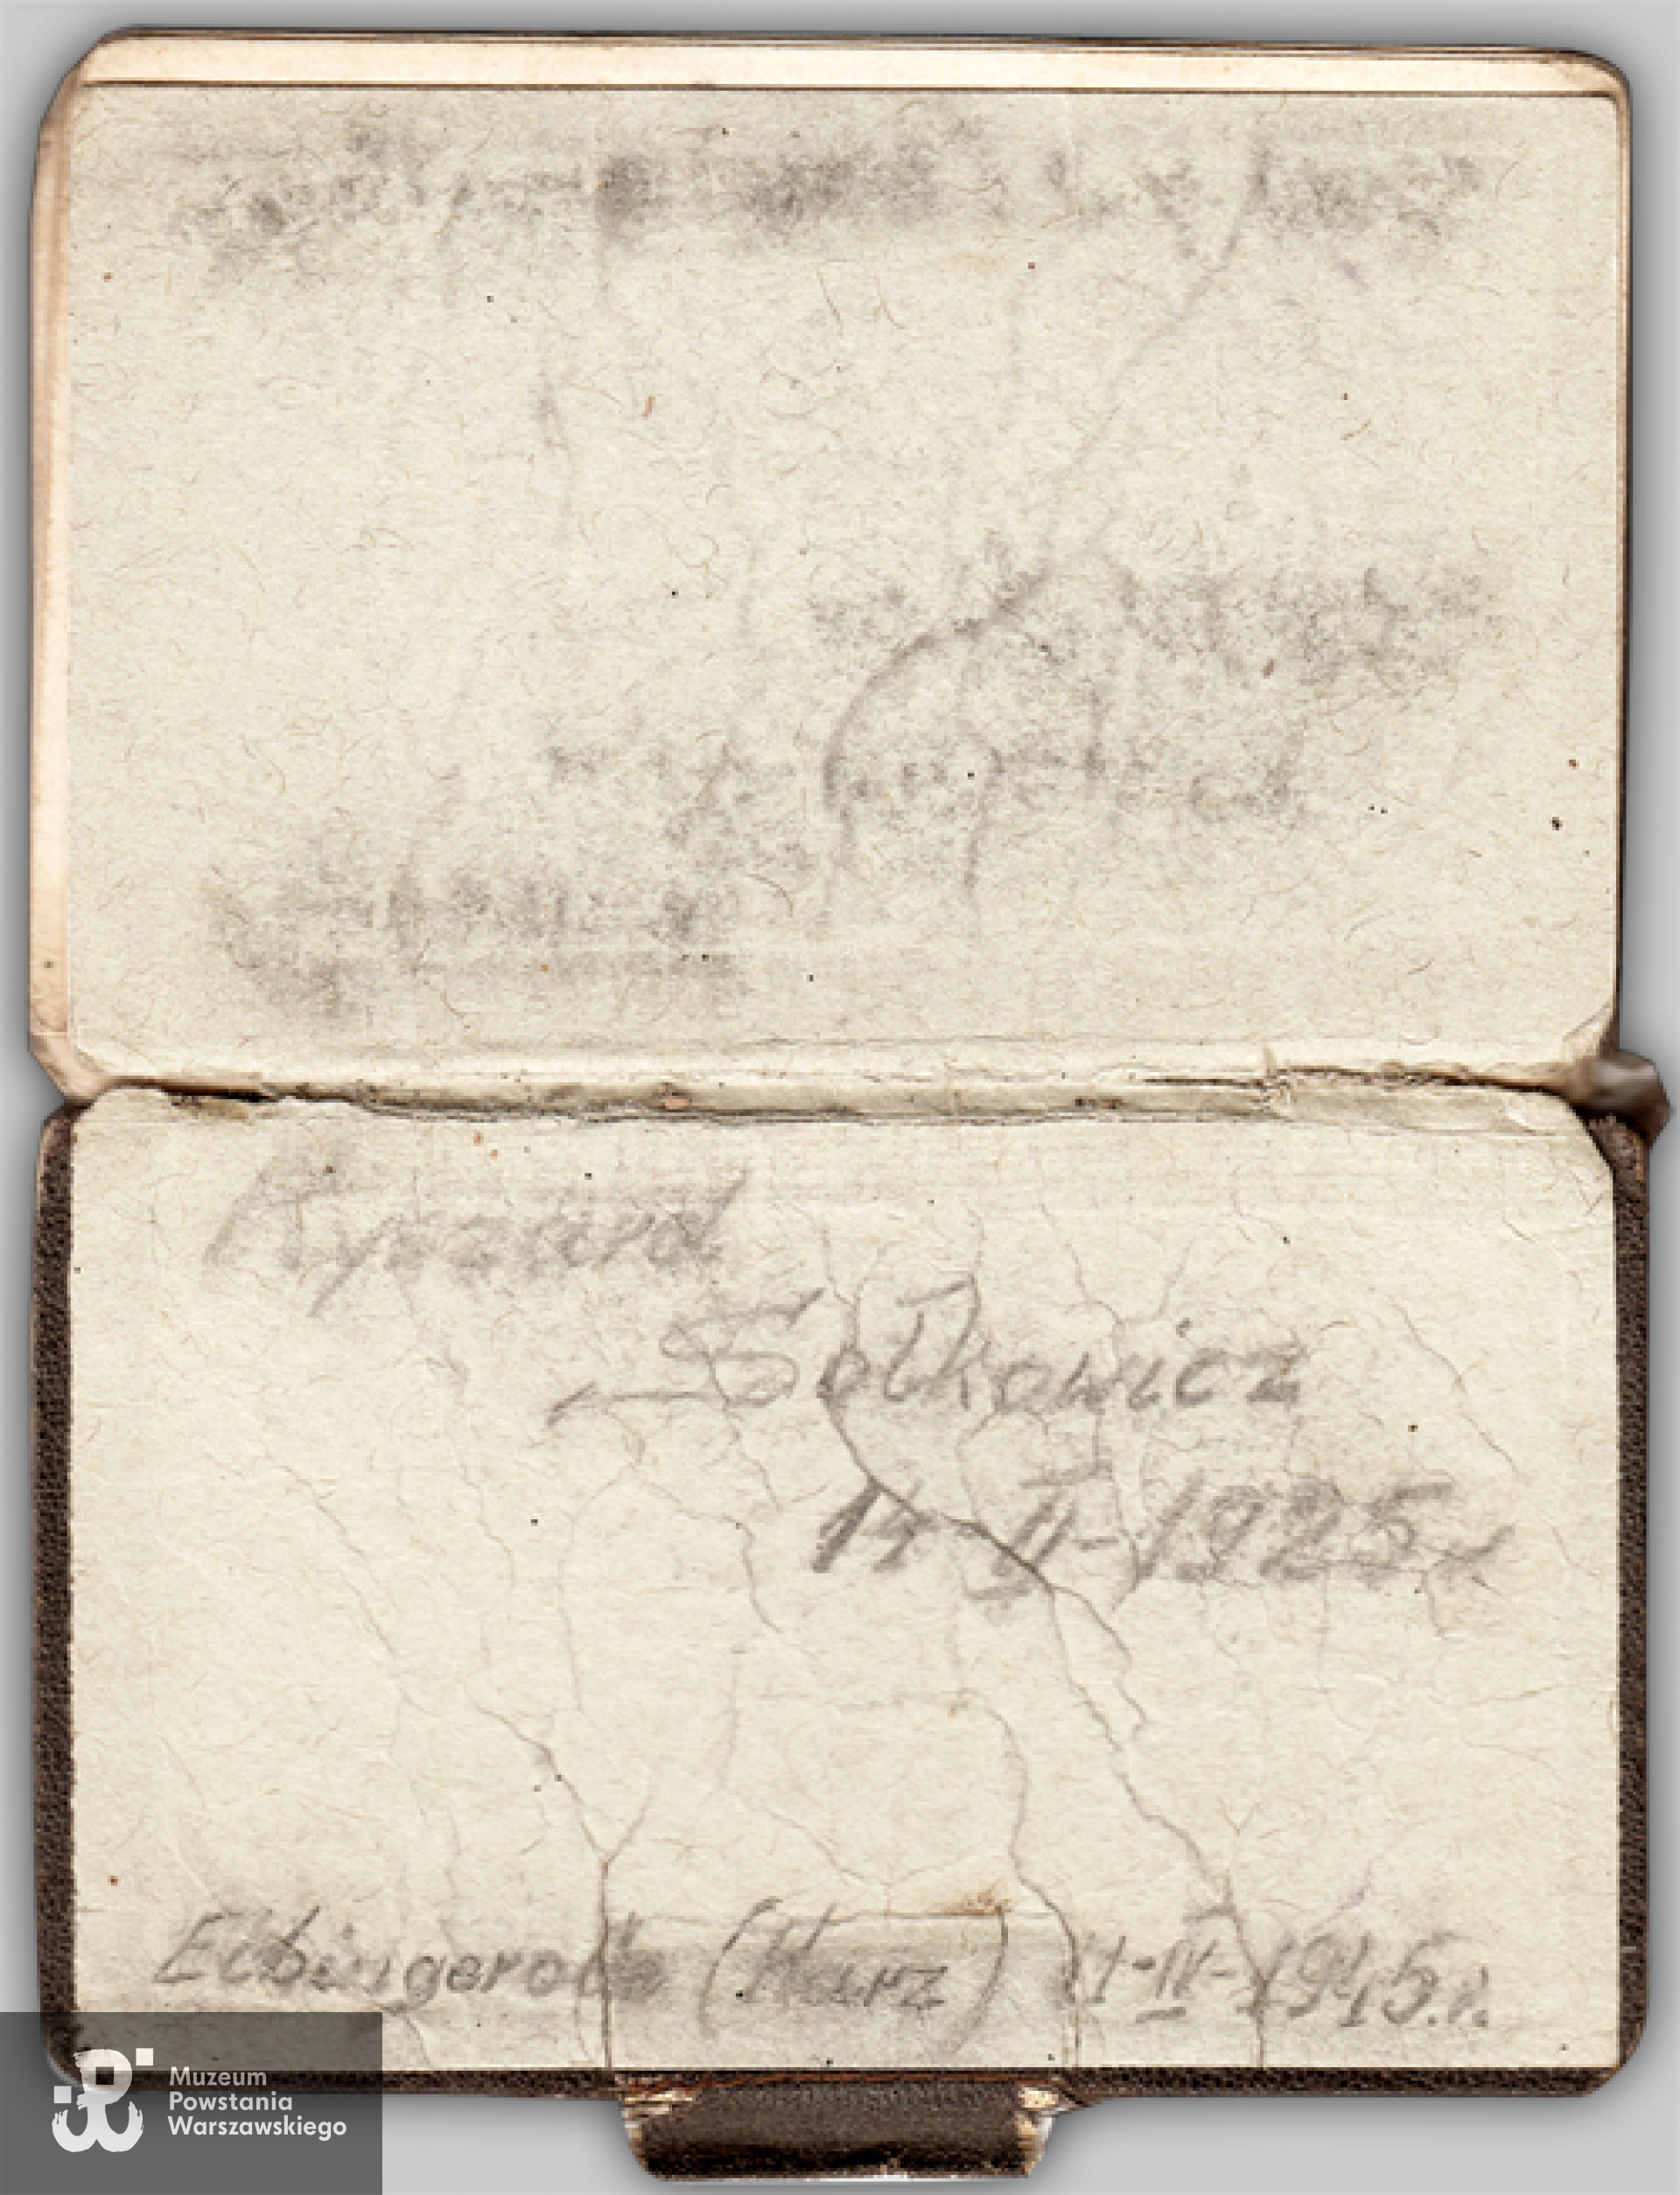 Ryszard
Sołkowicz
14-II-1925r
Elbingerode (Harz) 21-IV-1945.r.
Muzeum
Powstania
Warszawskiego